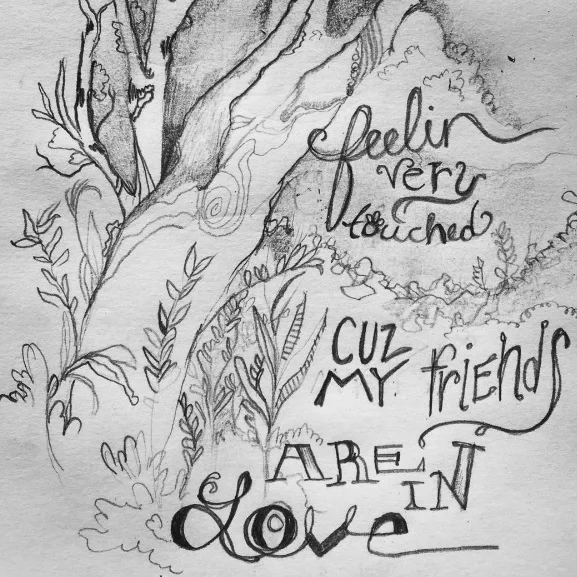 feelin
very
touched
CUZ
MY friends
ARE
IN
Love